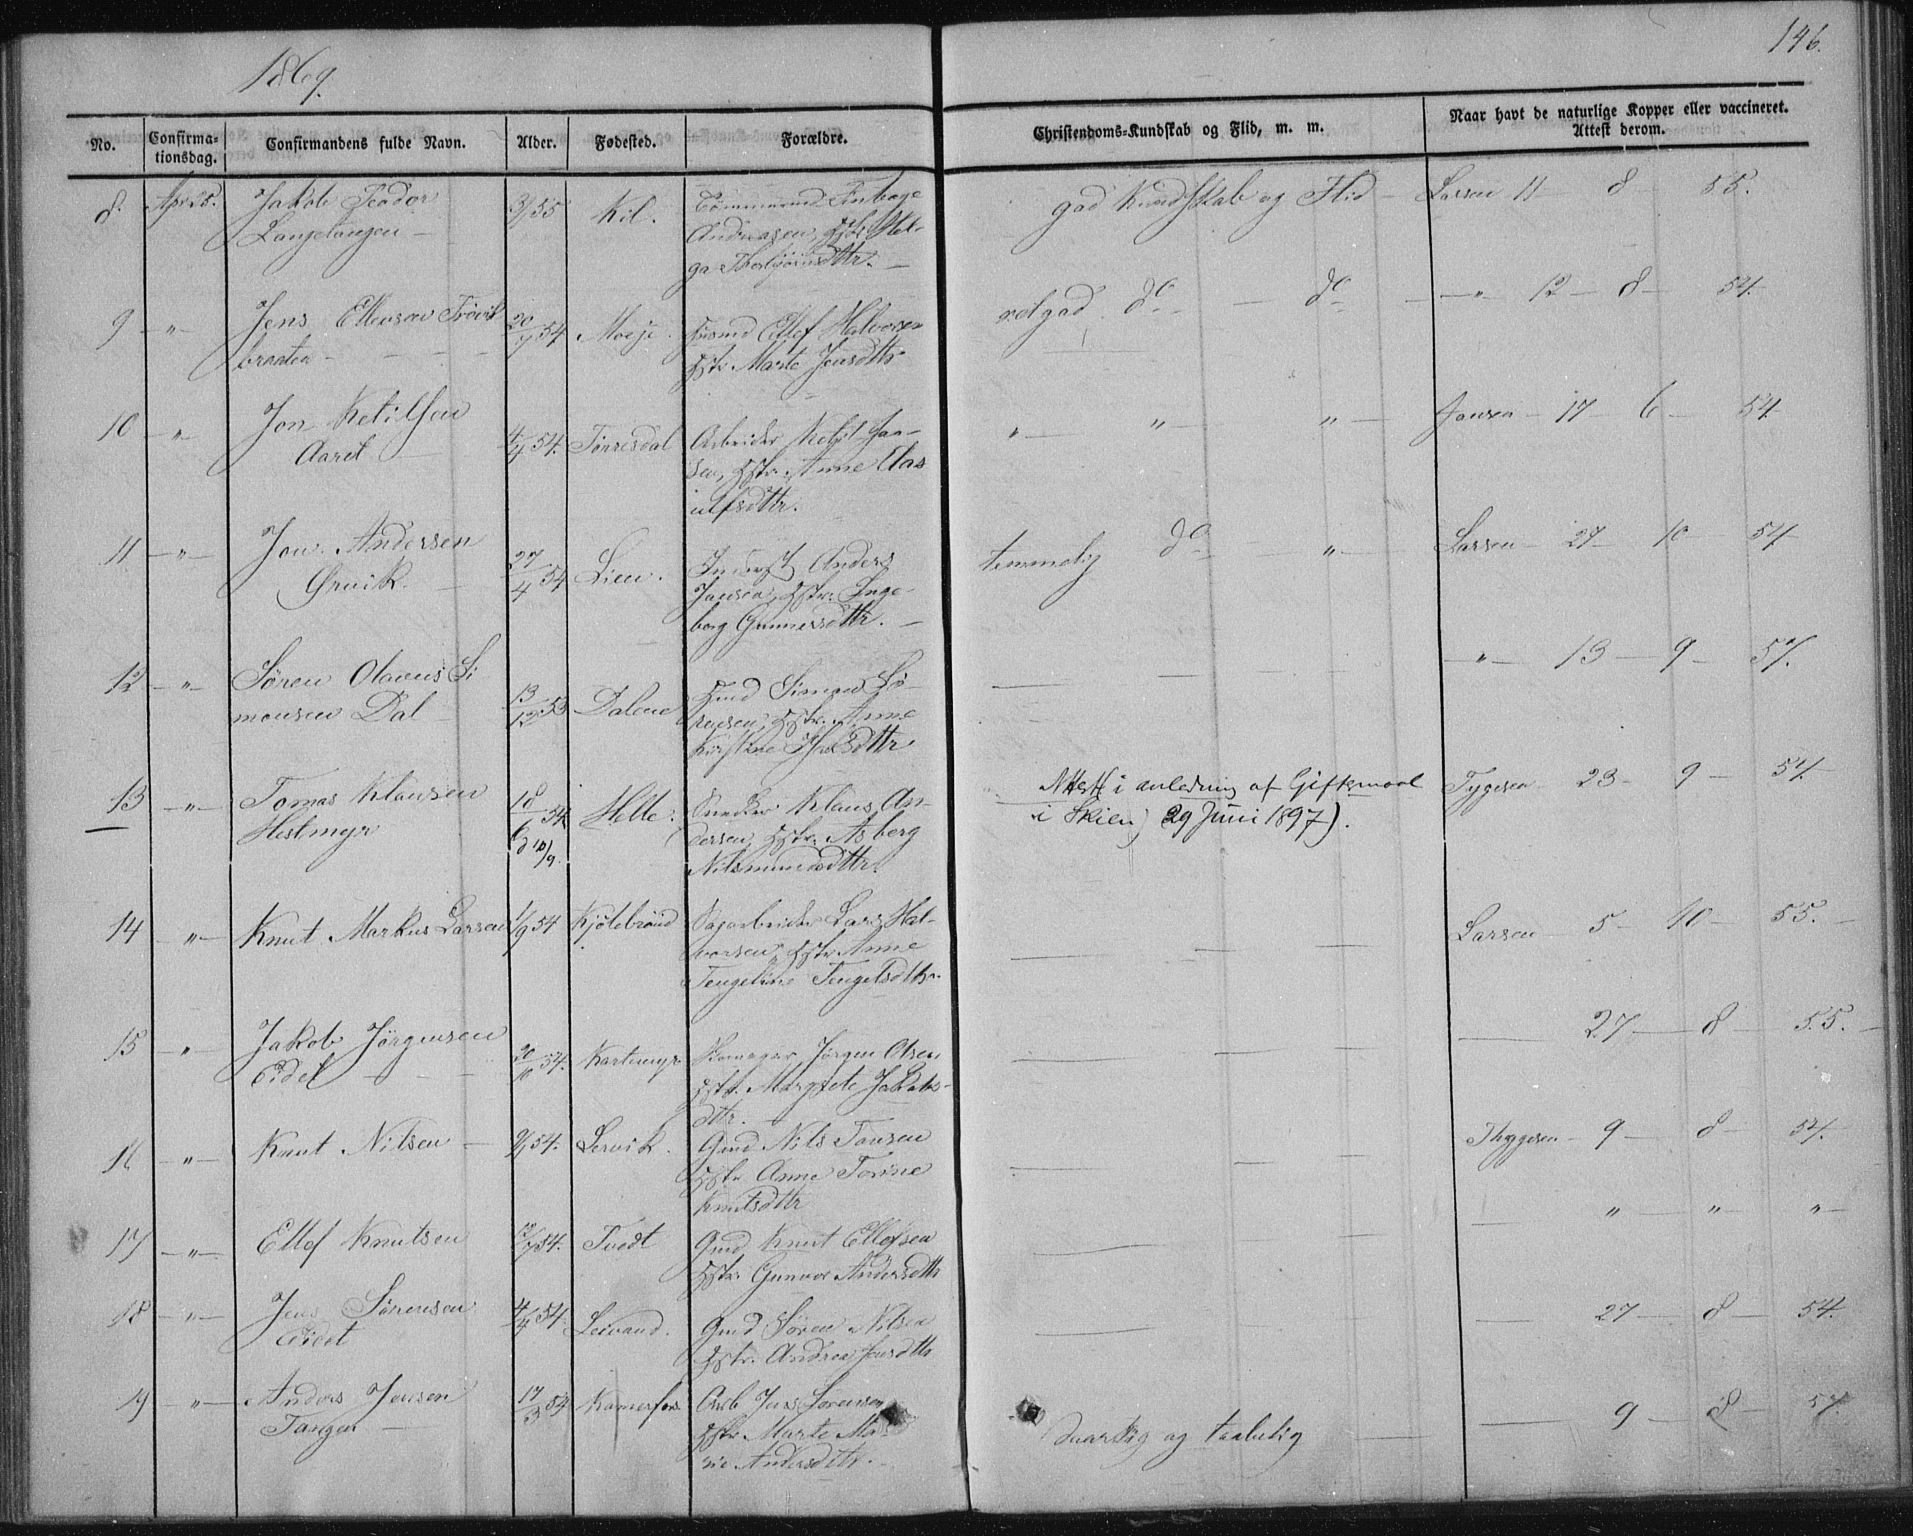 1869.
146.
No.
Confirma-
tionsdag.
Confirmandens fulde Navn.
Alder.
Fødested.
Forældre.
Christendoms-Kundskab og Flid, m. m.
Naar havt de naturlige Kopper eller vaccineret.
Attest derom.
8. Apr 25. Jakob Teodor 3/ 55 Kil.
Langetangen —
Andreasen, Hstr. Hel-
ga Thorbjörnsdttr. —
god Kundskab og Flid — Larsen 11 8 55.
9 — " — Jens Ellevsen
braaten — 20/7 54 Moeje. Husmd Ellef Halvorsen
Hstr. Marte Jensdttr
velgod do — do — " — 12 — 8 — 54.
10 — " Jon Ketilsen
Aaret — 4/4 54. Tørresdal Arbeider Ketil Jon-
sen, Hstr. Anne Aas
ulfsdttr.
" — " — " — Jonsen — 17 — 6 — 54
11 — " — Jon Andersen
Ørvik. — 27/4 54 Lien. Anders
Jonsen, Hstr. Inge-
borg Gunnersdttr. —
temmelig do — " — Larsen — 27 — 10 — 54
12 — " — Søren Olavus Si
monsen Dal — 13/12 53 Dalene Hmd Simon Sø-
rensen, Hstr. Anne
Kirstine
— " — 13 — 9 — 54.
13 — " — Tomas Klausen
Hestmyr 18/6 54 Helle. Klaus An-
d 10/9. dersen, Hstr. Asberg
Attest i anledning af Giftermaal
i Skien, 29 Juni 1897). Tygesen — 23 — 9 — 54.
14 — " — Knut Markus Larsen 1/9 54 Kjølebrønd Sagarbeider Lars Hal-
vorsen, Hstr. Anne
Tengeline Tengelsdttr.
Larsen — 5 — 10 — 55.
15 — " — Jakob Jörgensen
Eidet — 20/10 54. Jörgen Olsen
Hstr. Margrete Jakobs-
dttr. —
— 27 — 8 — 55.
16 — " — Knut Nilsen — 9/ 54. Lervik. Gmd Nils Jonsen
Hstr Anne Torine
Knutsdttr
Thygesen — 9 — 8 — 54.
17 — " — Ellef Knutsen 12/7 54. Tvedt Gmd Knut Ellefsen
Hstr. Gunvor Andersdttr
— " — " — "
18 — " — Jens Sörensen
Eidet 4/4 54. Leivand. Gmd Sören Nilsen
Hstr. Andrea Jensdttr
— 27 — 8 — 54.
19 — " — Anders Jensen
Tangen — 17/3 54 Kamerfos Arb Jens Sörensen
Hstr. Marte Ma-
rie Andersdttr. —
svarkig og taalelig — 9 — 8 — 54.